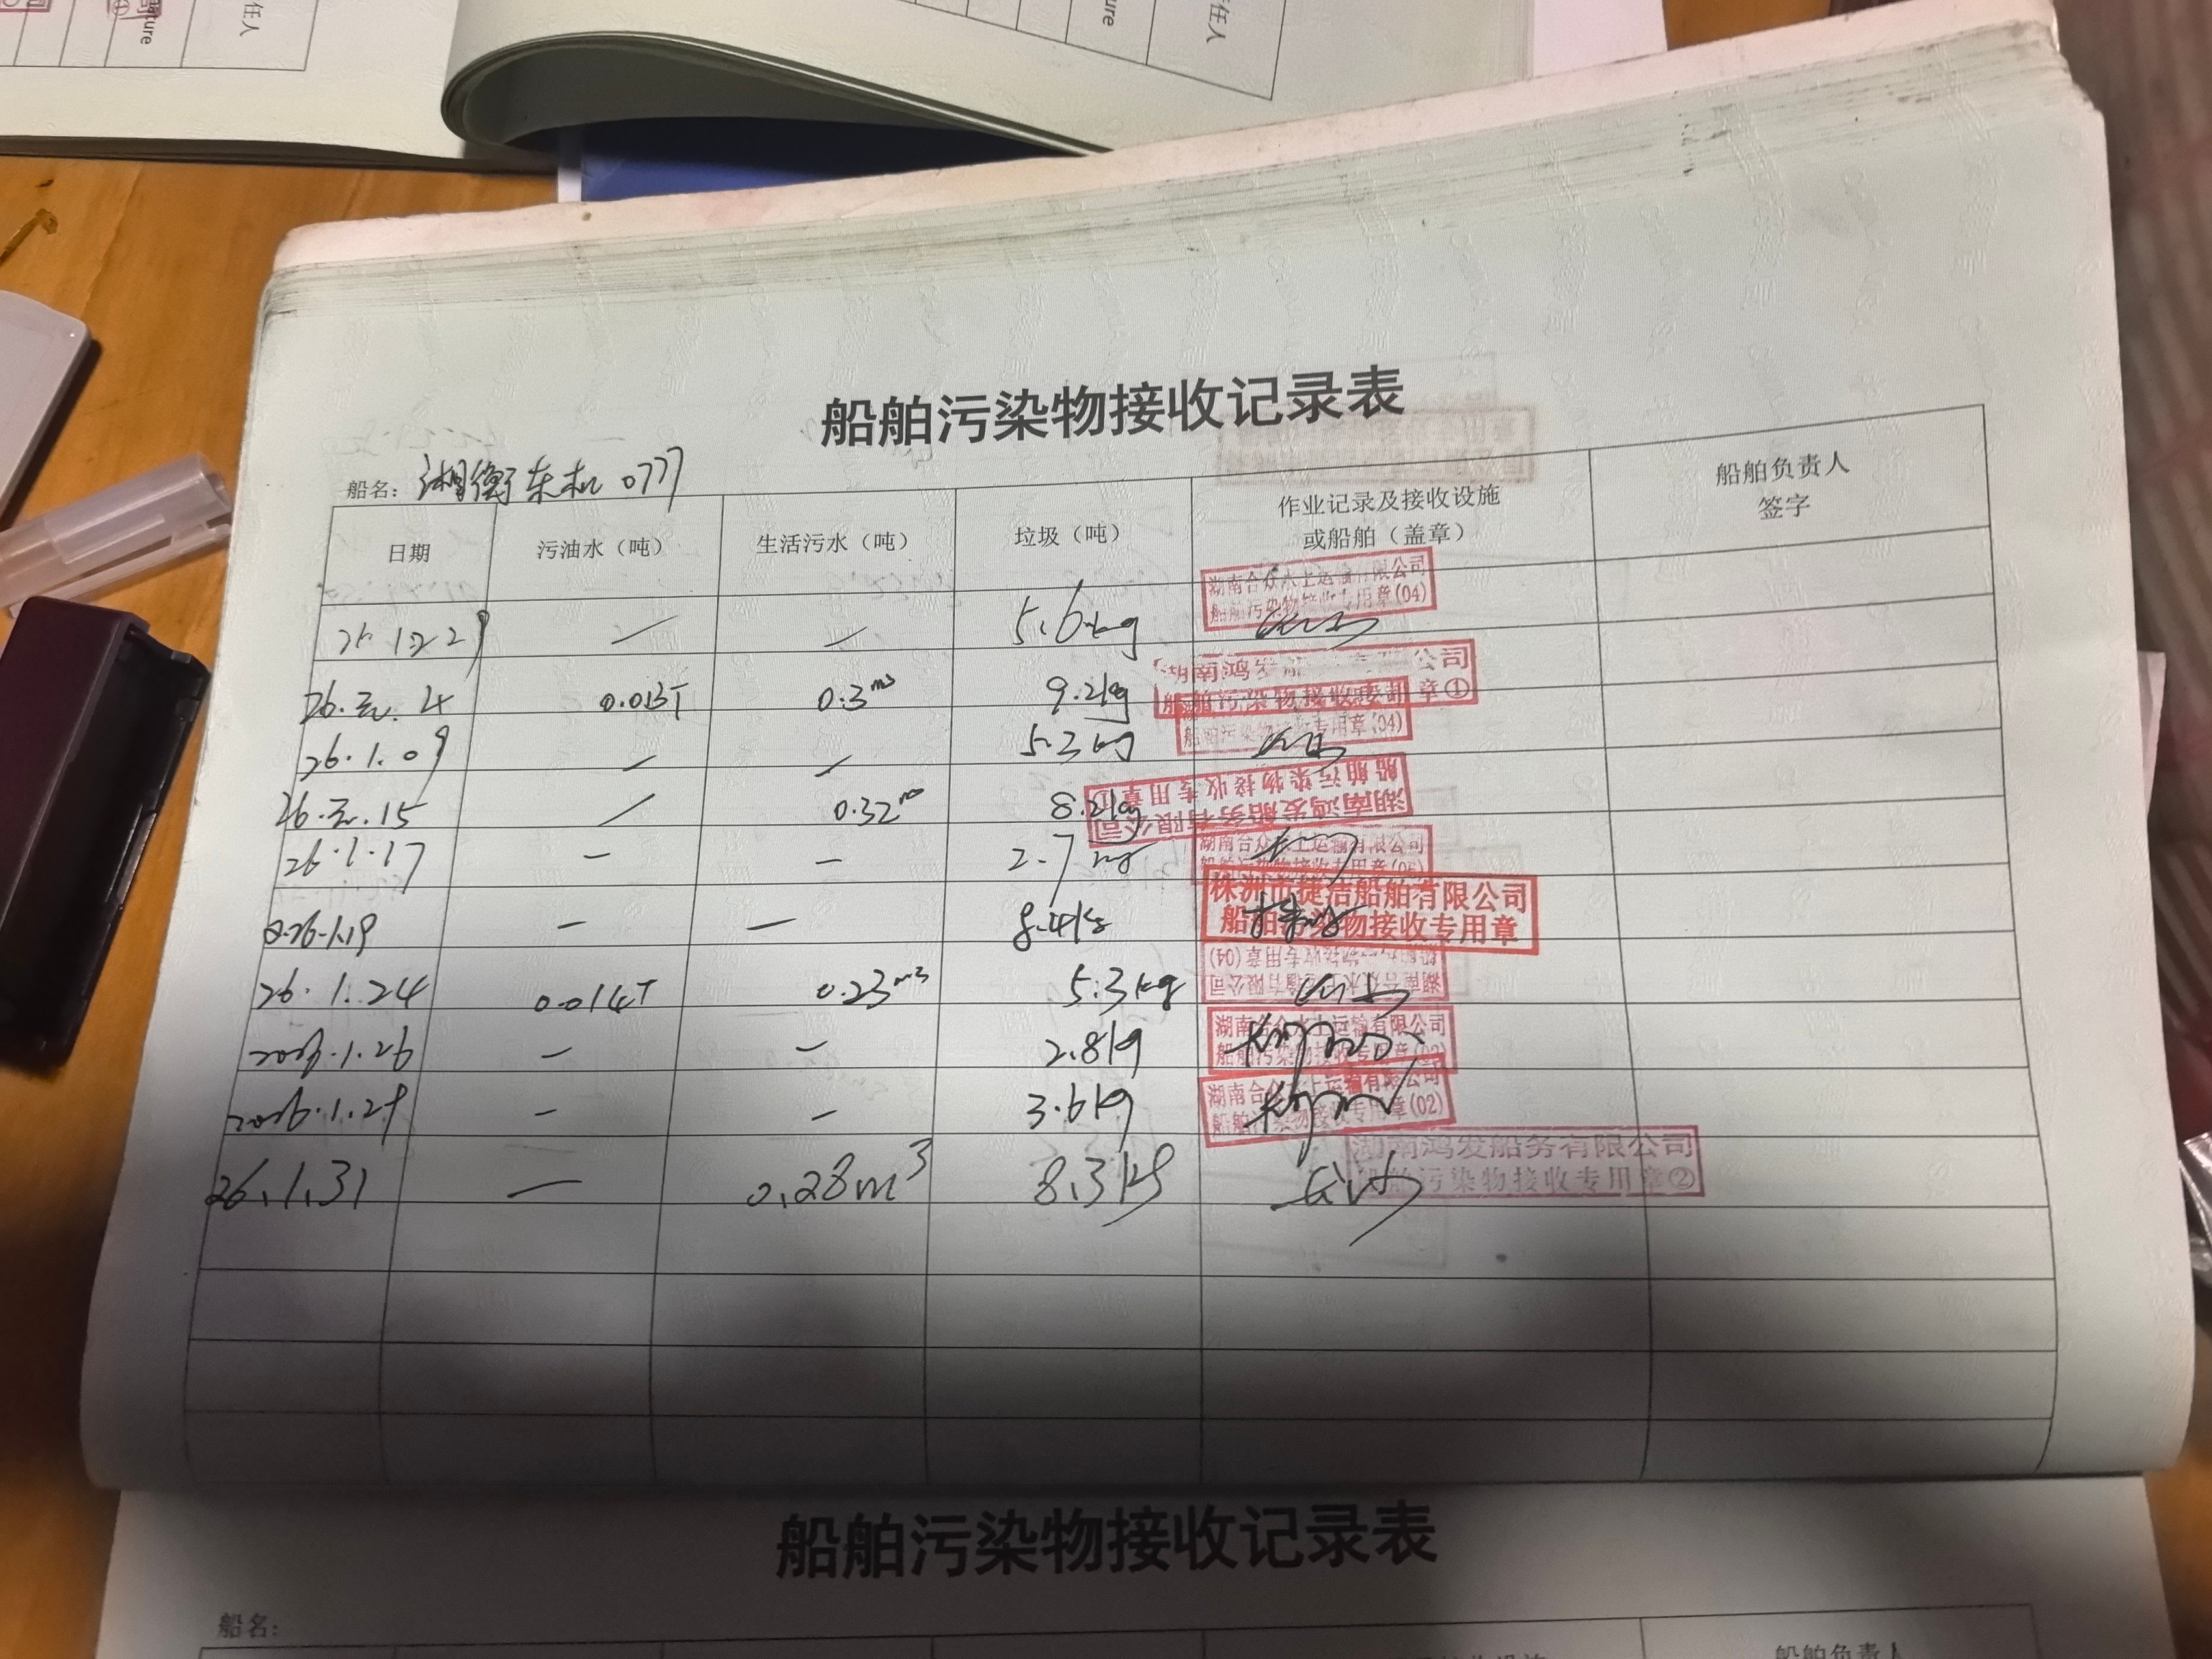 任人
ture
任人
ure
船舶污染物接收记录表
船名: 湘衡东机0777
日期 污油水（吨） 生活污水（吨） 垃圾（吨） 作业记录及接收设施或船舶（盖章） 船舶负责人签字
25.12.29 / / 5.6kg 湖南合众水上运输有限公司 船舶污染物接收专用章(04)
26.元.4 0.013T 0.3m3 9.2kg 湖南鸿发 公司 船舶污染物接收专用章①
26.1.09 / / 5.3kg 船舶污染物接收专用章(04)
26.元.15 / 0.32m3 8.2kg 湖南鸿发船务有限公司 船舶污染物接收专用章①
26.1.17 — — 2.7kg 湖南合众水上运输有限公司 船舶污染物接收专用章
2026.1.19 — — 8.4kg 株洲市捷洁船舶有限公司 船舶污染物接收专用章
26.1.24 0.014T 0.23m3 5.3kg 湖南合众水上运输有限公司 船舶污染物接收专用章(04)
2026.1.26 — — 2.8kg 湖南合众水上运输有限公司 船舶污染物接收专用章
2026.1.29 — — 3.6kg 湖南合众水上运输有限公司 船舶污染物接收专用章(02)
26.1.31 — 0.28m³ 8.3kg 湖南鸿发船务有限公司 船舶污染物接收专用章②
船舶污染物接收记录表
船名:
船舶负责人